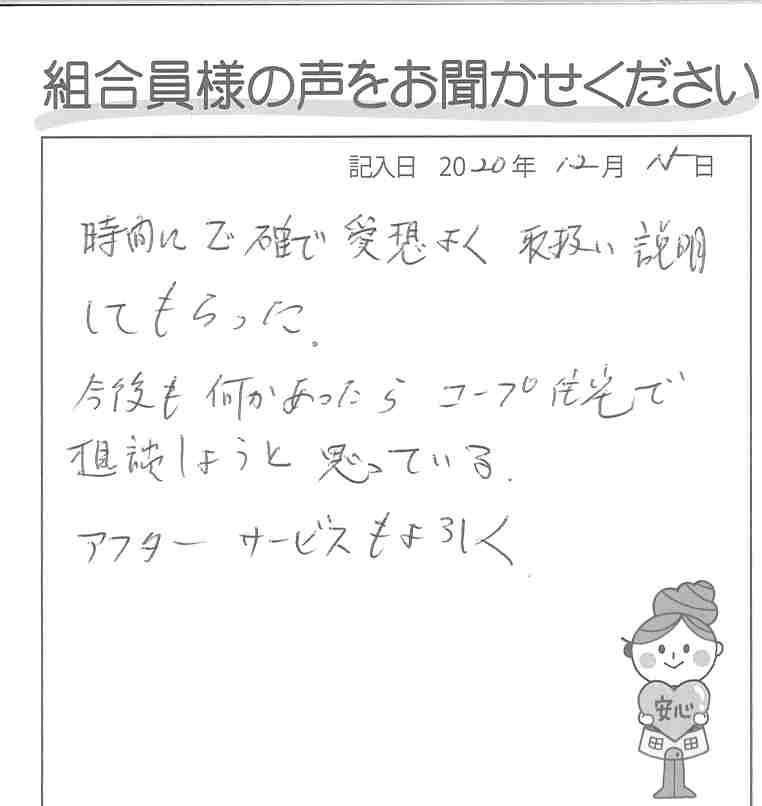 組合員様の声をお聞かせください
記入日 2020年 12月 15日
時間に正確で 愛想よく 取扱い 説明
してもらった。
今後も 何かあったら コープ住宅で
相談しようと 思っている.
アフター サービスもよろしく
安心